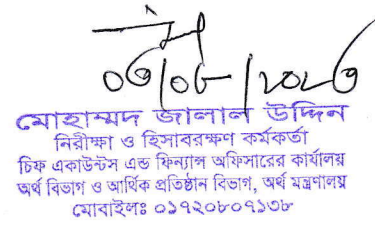 ০৩/০৮/২০২৩
মোহাম্মদ জালাল উদ্দিন
নিরীক্ষা ও হিসাবরক্ষণ কর্মকর্তা
চিফ একাউন্টস এন্ড ফিন্যান্স অফিসারের কার্যালয়
অর্থ বিভাগ ও আর্থিক প্রতিষ্ঠান বিভাগ, অর্থ মন্ত্রণালয়
মোবাইলঃ ০১৭২০৮০৭১৩৮